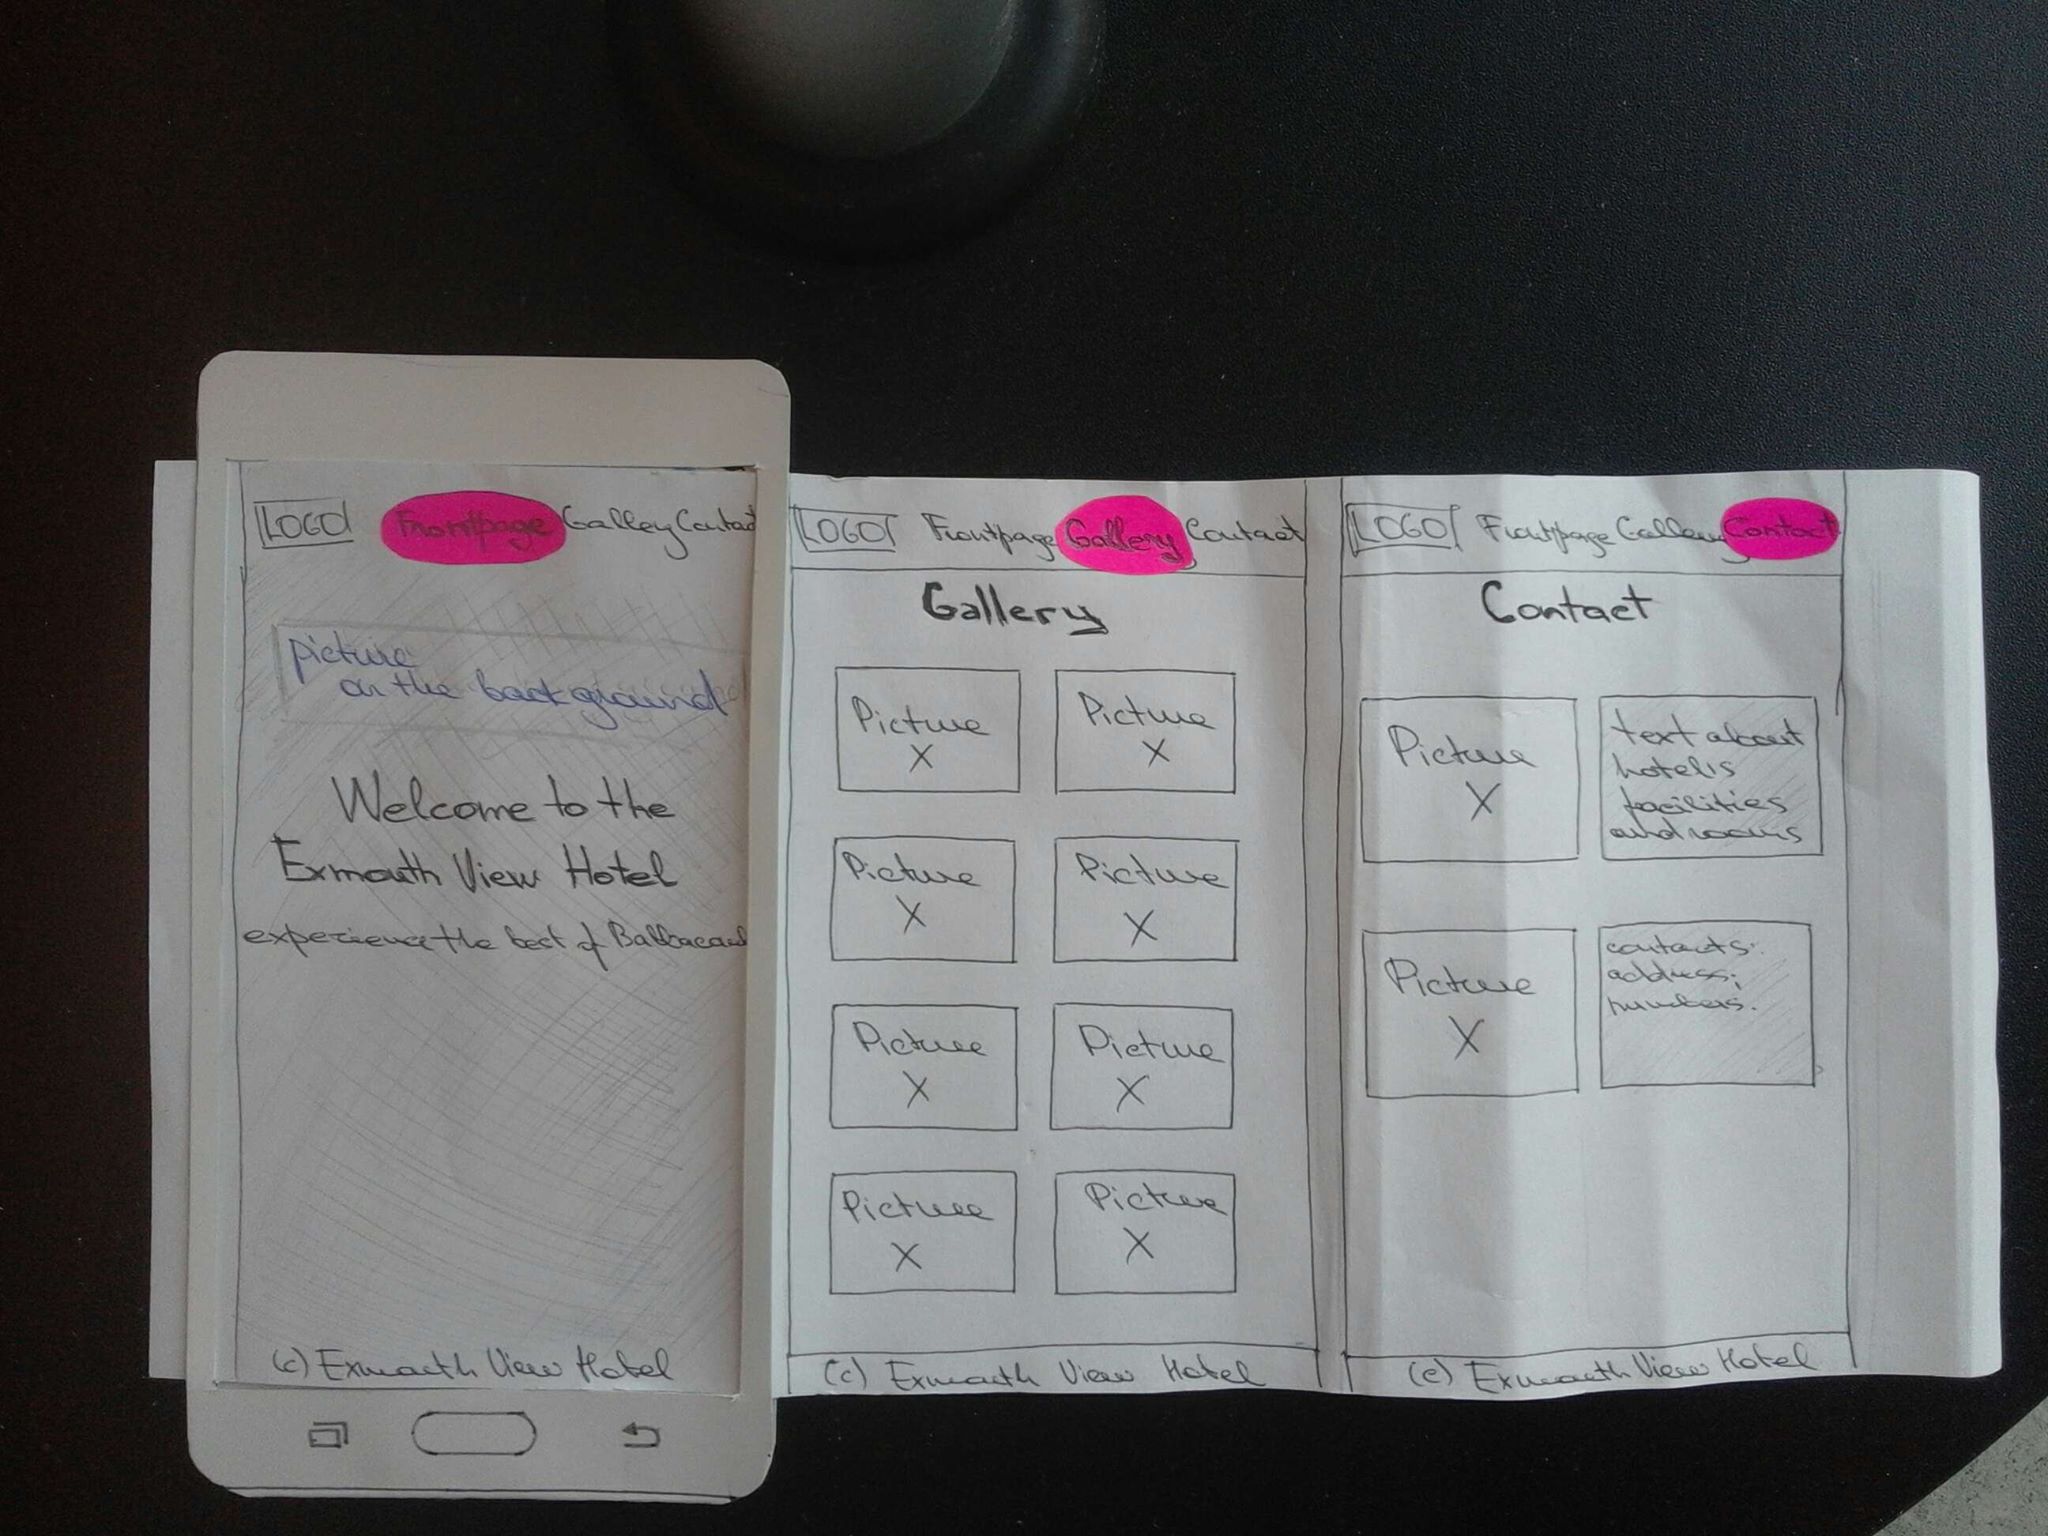 LOGO Frontpage Gallery Contact
picture
on the background
Welcome to the
Exmouth View Hotel
experience the best of
(c) Exmouth View Hotel
LOGO Frontpage Gallery Contact
Gallery
Picture X
Picture X
Picture X
Picture X
Picture X
Picture X
Picture X
Picture X
(c) Exmouth View Hotel
LOGO Frontpage Gallery Contact
Contact
Picture
X
text about
hotel's
facilities
and rooms
Picture
X
contacts:
address;
numbers.
(c) Exmouth View Hotel